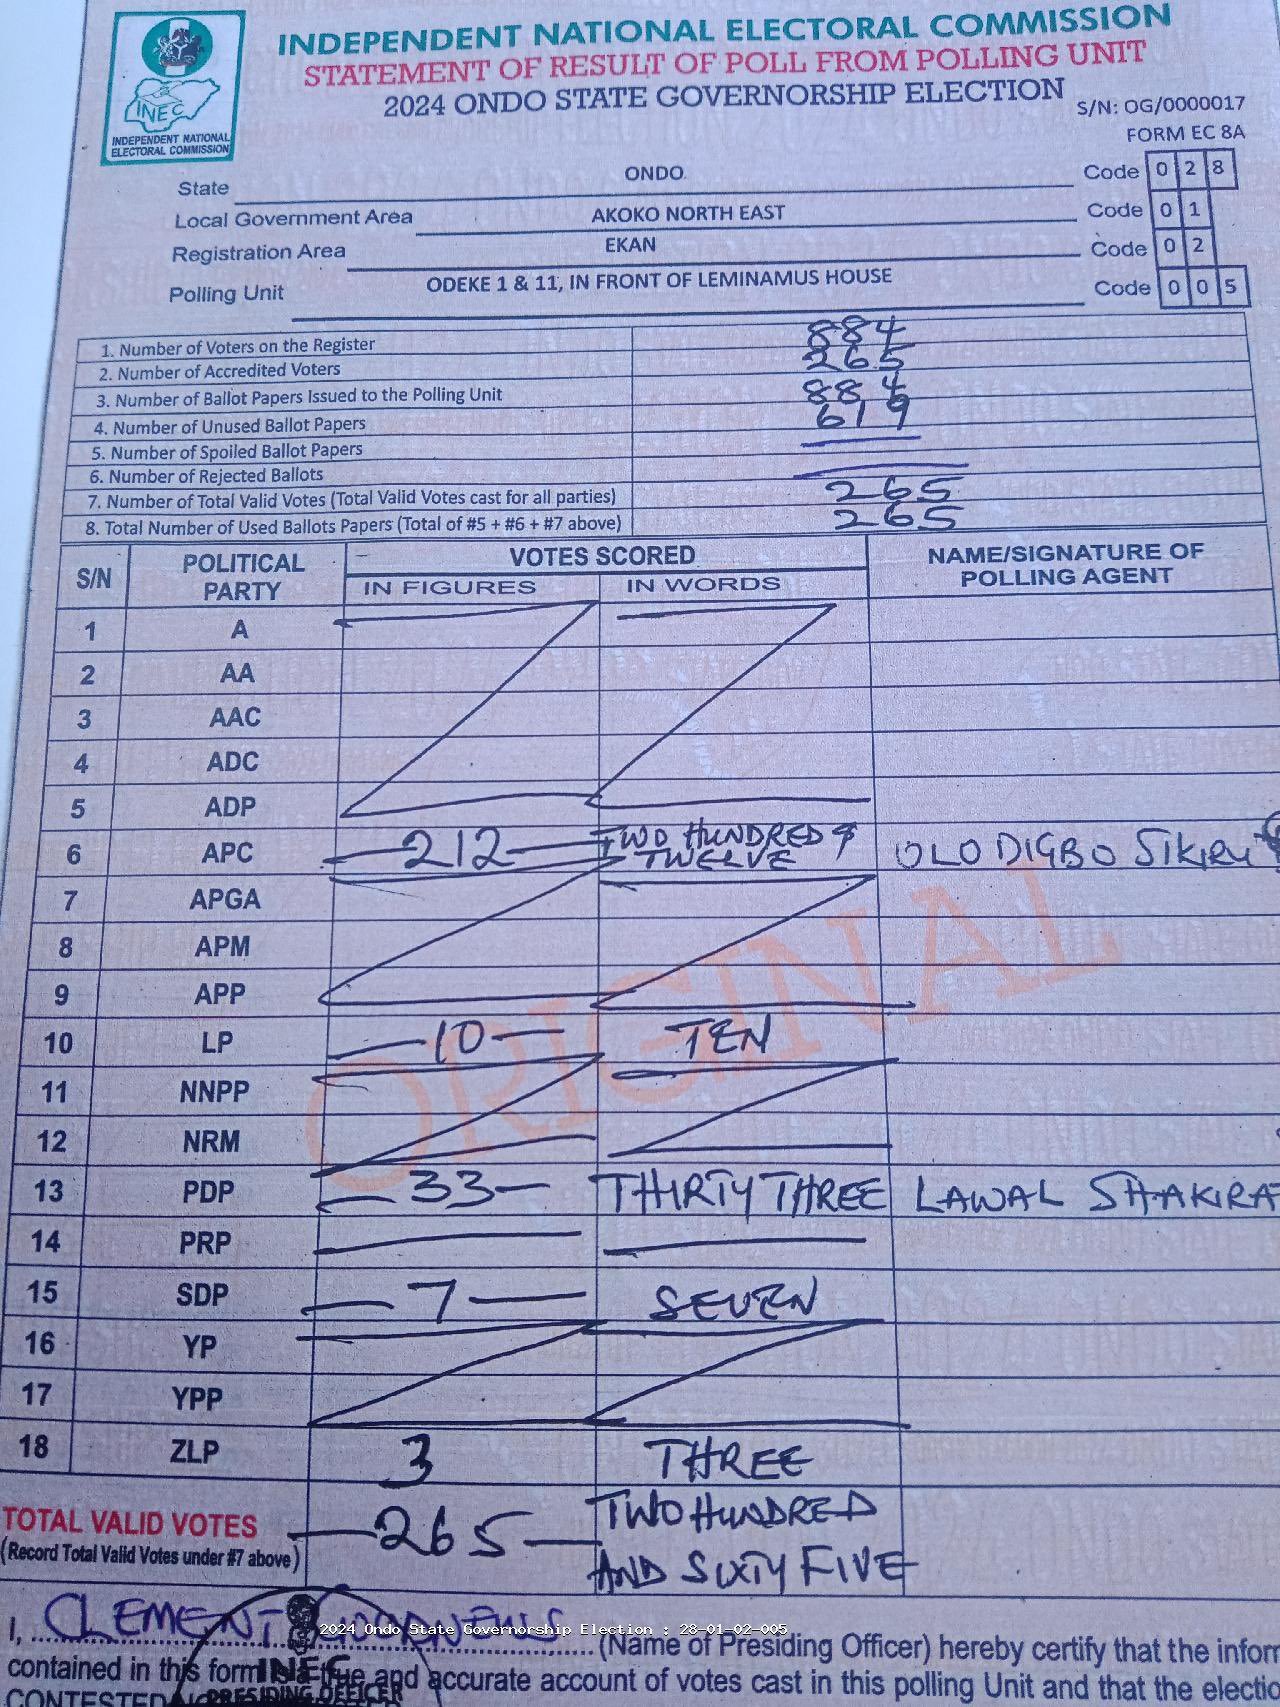 INDEPENDENT NATIONAL ELECTORAL COMMISSION
STATEMENT OF RESULT OF POLL FROM POLLING UNIT
2024 ONDO STATE GOVERNORSHIP ELECTION
S/N: OG/0000017
FORM EC 8A
INEC
INDEPENDENT NATIONAL
ELECTORAL COMMISSION
State ONDO Code 0 2 8
Local Government Area AKOKO NORTH EAST Code 0 1
Registration Area EKAN Code 0 2
Polling Unit ODEKE 1 & 11, IN FRONT OF LEMINAMUS HOUSE Code 0 0 5
1. Number of Voters on the Register 884
2. Number of Accredited Voters 265
3. Number of Ballot Papers Issued to the Polling Unit 884
4. Number of Unused Ballot Papers 619
5. Number of Spoiled Ballot Papers
6. Number of Rejected Ballots
7. Number of Total Valid Votes (Total Valid Votes cast for all parties) 265
8. Total Number of Used Ballots Papers (Total of #5 + #6 + #7 above) 265
S/N POLITICAL PARTY VOTES SCORED NAME/SIGNATURE OF POLLING AGENT
IN FIGURES IN WORDS
1 A
2 AA
3 AAC
4 ADC
5 ADP
6 APC 212 TWO HUNDRED & TWELVE OLODIGBO SIKIRU
7 APGA
8 APM
9 APP
10 LP 10 TEN
11 NNPP
12 NRM
13 PDP 33 THIRTY THREE LAWAL SHAKIRA
14 PRP
15 SDP 7 SEVEN
16 YP
17 YPP
18 ZLP 3 THREE
ORIGINAL
TOTAL VALID VOTES 265 TWO HUNDRED
(Record Total Valid Votes under #7 above) AND SIXTY FIVE
I, CLEMENT GOODNEWS (Name of Presiding Officer) hereby certify that the inform
2024 Ondo State Governorship Election : 28-01-02-005
contained in this form and accurate account of votes cast in this polling Unit and that the electio
INEC
PRESIDING OFFICER
CONTESTED